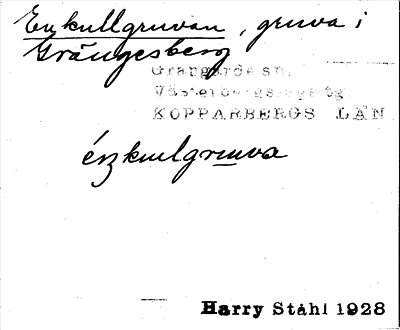 Enkullgruvan, gruva i
Grängesberg
Grangärde sn.
Västerbergslags tg.
KOPPARBERGS LÄN
énkulgruva
Harry Ståhl 1928